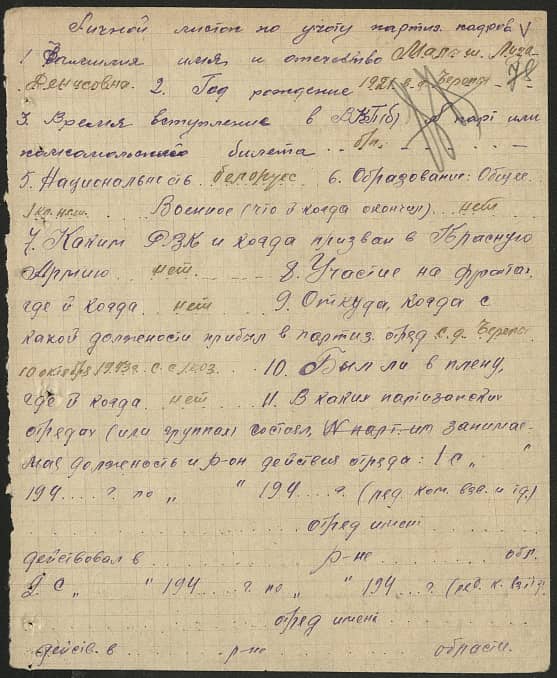 Личной листок по учоту партиз. кадров V
1 Фамилия имя и отечество Малаш. Лиза
Денисовна. 2. Год рождение 1921 78
3. Время вступление в ВКП(б) и парт или
комсомольского билета .. б/п.
5. Националность белорус 6. Образование: Общее
1 кл. нем. Военное (что й когда окончил) нет
7. Каким РВК и когда призван в Красную
Армию нет. 8. Участие на фронтах
где й когда. нет 9. Откуда, когда с
какой должености прибыл в партиз. отряд с. д. Береза
10 октября 1943 г. с. 10. Был ли в плену,
где й когда. нет 11. В каких партизанских
отрядах (или группах) состоял, № парт. занимае-
мая должность и р-он действия отряда: 1 с „ "
194 .... г. по „ " 194 .... г. (ряд. ком. взв. и тд.)
отряд имет
действовал в р-не обл.
2. с „ " 194 .... г. по „ " 194 .. г. (ряд. к.
отряд имени
действ. в р-не области.